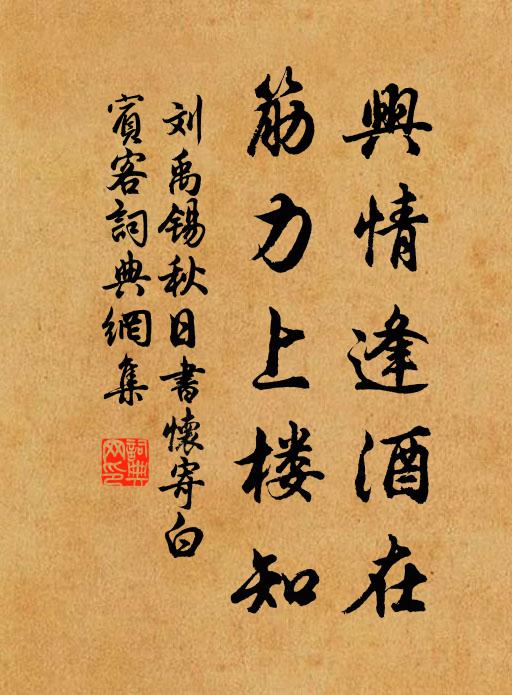 興情逢酒在
筋力上楼知
刘禹锡秋日書懷寄白
賓客詞典網集
詞典网印